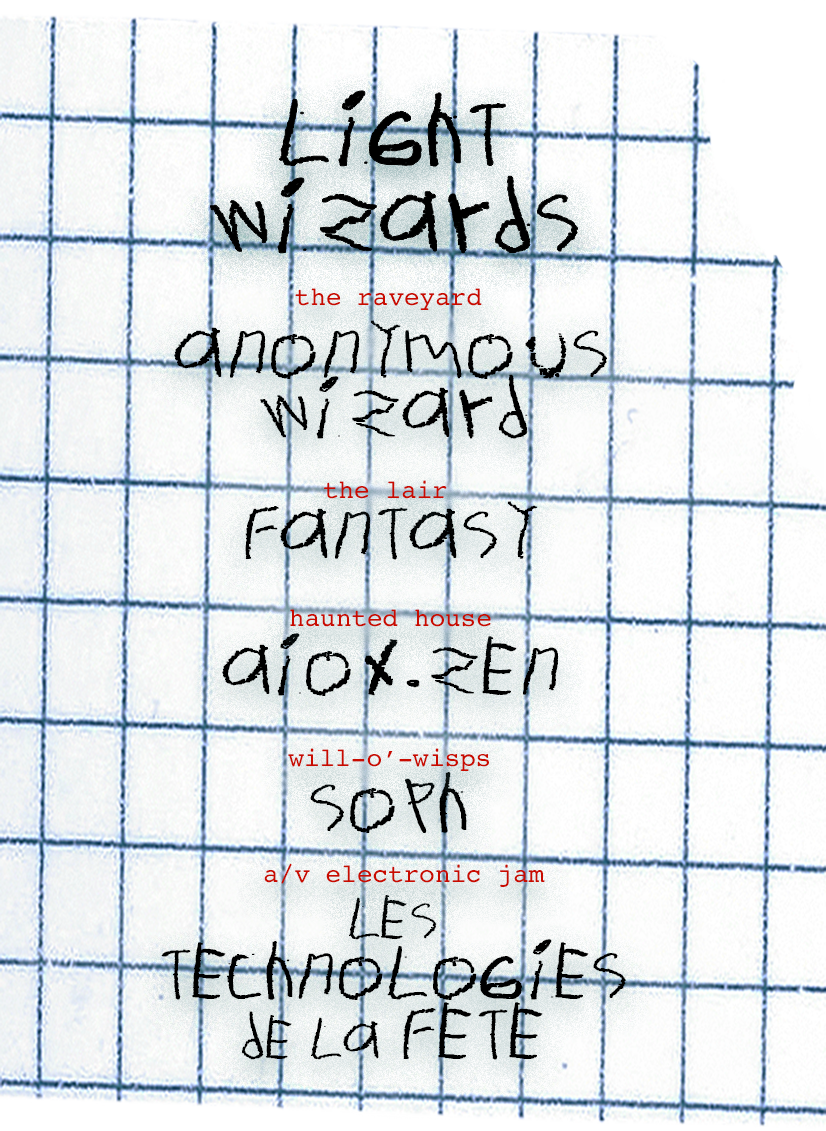 LiGhT
wizards
the raveyard
anonYmous
wizard
the lair
FanTasY
haunted house
aiox.zEn
will-o’-wisps
soPh
a/v electronic jam
LES
TEChnoLOGiES
dE La FETE